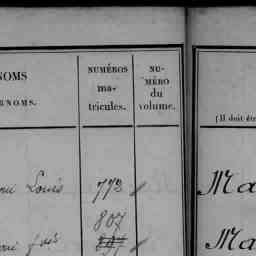 NOMS
RNOMS.
NUMÉROS
ma-
tricules.
NU-
MÉRO
du
volume.
(Il doit êtr
Louis 773 Ma
807
Ma